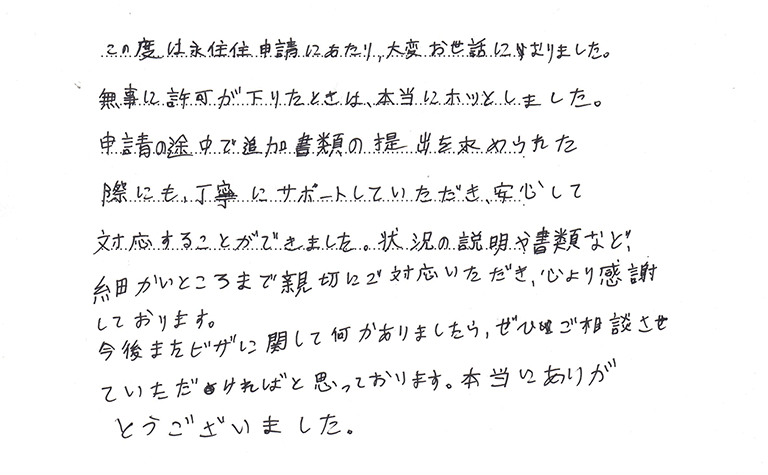 この度は永住住申請にあたり、大変お世話になりました。
無事に許可が下りたときは、本当にホッとしました。
申請の途中で追加書類の提出を求められた
際にも、丁寧にサポートしていただき、安心して
対応することができました。状況の説明や書類など、
細かいところまで親切にご対応いただき、心より感謝
しております。
今後またビザに関して何かありましたら、ぜひご相談させ
ていただければと思っております。本当にありが
とうございました。